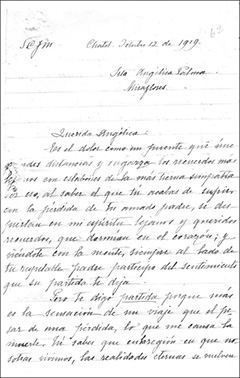 Chatel. Octubre 12 de 1919.
Srta Angélica Palma
Miraflores.
Querida Angélica
Es el dolor como un puente que une
des distancias y engarza los recuerdos más
nos con eslabones de la más tierna simpatía
or eso, al saber el que tú acabas de sufrir
con la pérdida de tu amado padre, se des
piertan en mi espíritu lejanos y queridos
recuerdos, que dormían en el corazón; y
viéndote con la mente, siempre al lado de
tu respetable padre participo del sentimiento
que su partida te deja
Pero te digo partida porque más
es la sensación de un viaje que el pe
sar de una pérdida, lo que me causa la
muerte. Tú sabes que en la región en que no
sotras vivimos, las realidades eternas se vuelven